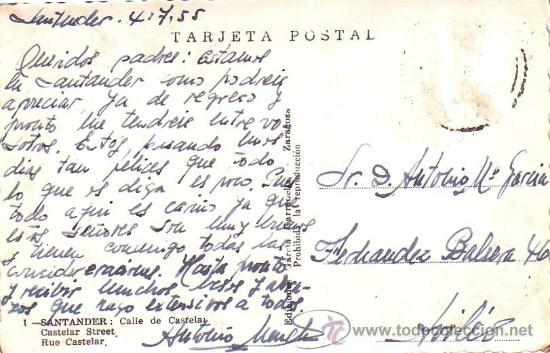 Santander. 4-7-55
TARJETA POSTAL
Queridos padres: estamos
en Santander como podreis
apreciar, ya de regreso y
pronto me tendreis entre vo-
sotros. Estoy pasando unos
dias tan felices que todo
lo que os diga es poco. Pues
todo aqui es cariño ya que
estos señores son muy buenos
y tienen conmigo todas las
consideraciones. Hasta pronto
y recibir muchos besos y abra-
zos que hago extensivos a todos
Antonio
1 —SANTANDER: Calle de Castelar
Castelar Street
Rue Castelar
Ediciones García Garrabella Zaragoza
Prohibida la reproducción
Sr. D. Antonio Mª Garcia
Fernandez Balsera 46
Avilés
todocoleccion.net